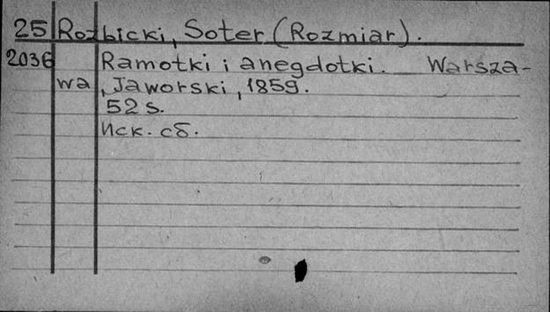 25 Rozbicki, Soter (Rozmiar).
2036 Ramotki i anegdotki. Warsza-
wa, Jaworski, 1859.
52 s.
Иск. сб.